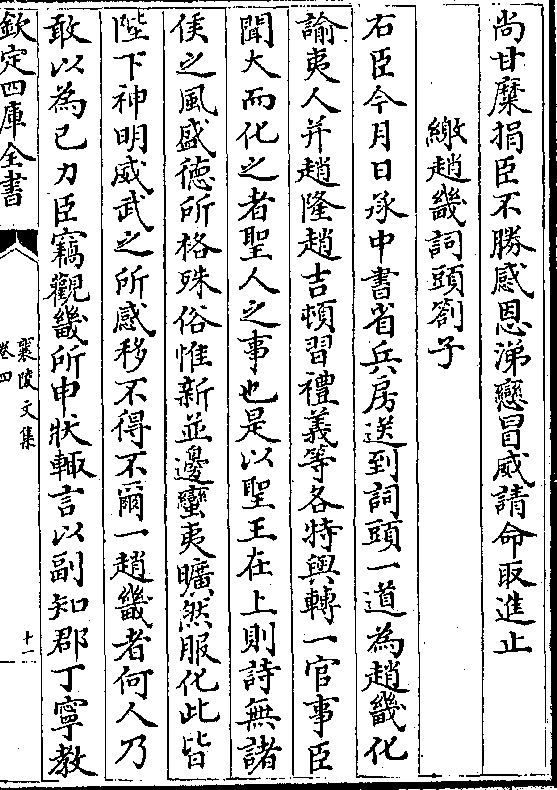 尚甘糜捐臣不勝感恩涕戀冒威請命取進止
繳趙畿詞頭劄子
右臣今月日承中書省兵房送到詞頭一道為趙畿化
諭夷人并趙隆趙吉頓習禮義等各特與轉一官事臣
聞大而化之者聖人之事也是以聖王在上則詩無諸
侯之風盛德所格殊俗惟新並邊蠻夷曠然服化此皆
陛下神明威武之所感移不得不爾一趙畿者何人乃
敢以為己力臣竊觀畿所申狀輙言以副知郡丁寧教
欽定四庫全書
襄陵文集
卷四
十一